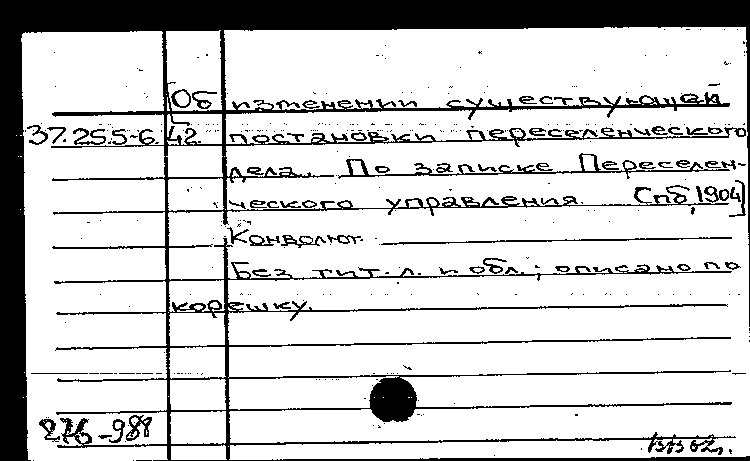 [Об изменении существующей
37.25.5-6.42. постановки переселенческого
дела. По записке Переселен-
ческого управления. Спб, 1904]
Конволют.
Без тит. л. и обл.; описано по
корешку.
276-988